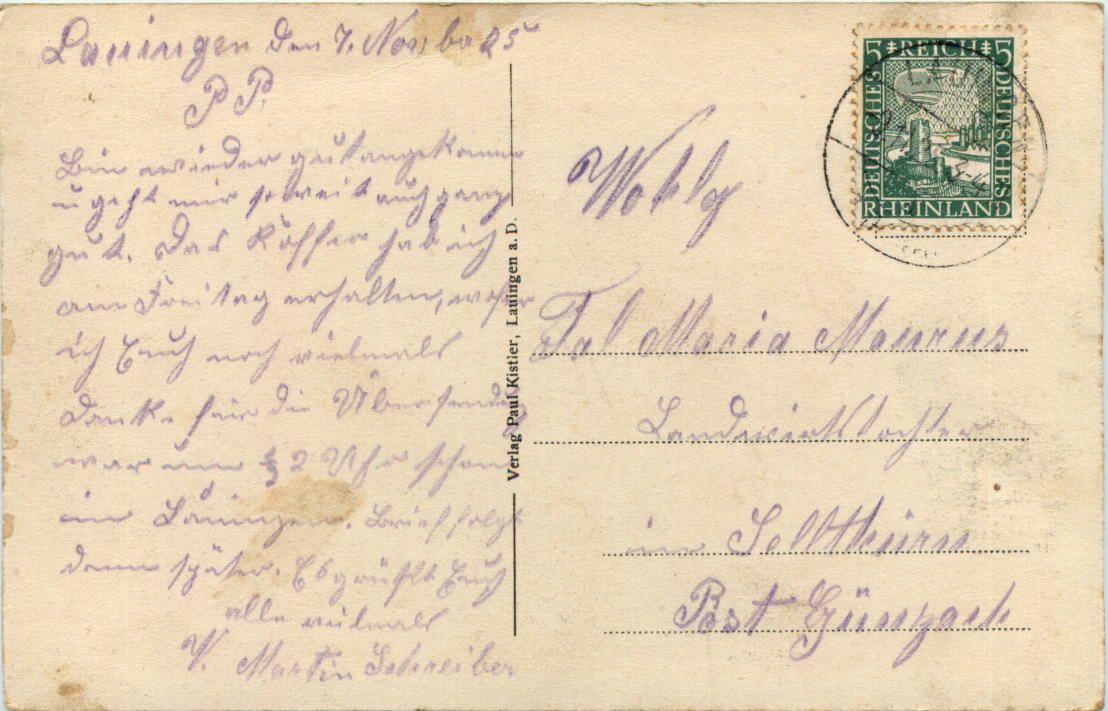 Lauingen den 7. Novba 25
P P.
Bin wieder gut angekommen
u geht mir soweit auch ganz
gut. Das Koffer hab ich
am Freitag erhalten, wofür
ich Euch noch vielmals
danke für die Übersendung
war um ½ 2 Uhr schon
in Lauingen. Brief folgt
dann später. Es grüßt Euch
alle vielmals
V. Martin Schreiber
Verlag Paul Kistler, Lauingen a. D.
5 REICH 5
DEUTSCHES
DEUTSCHES
RHEINLAND
Wohlg
Frl Maria Maurus
Landwirtstochter
in Sellthürn
Post Günzach